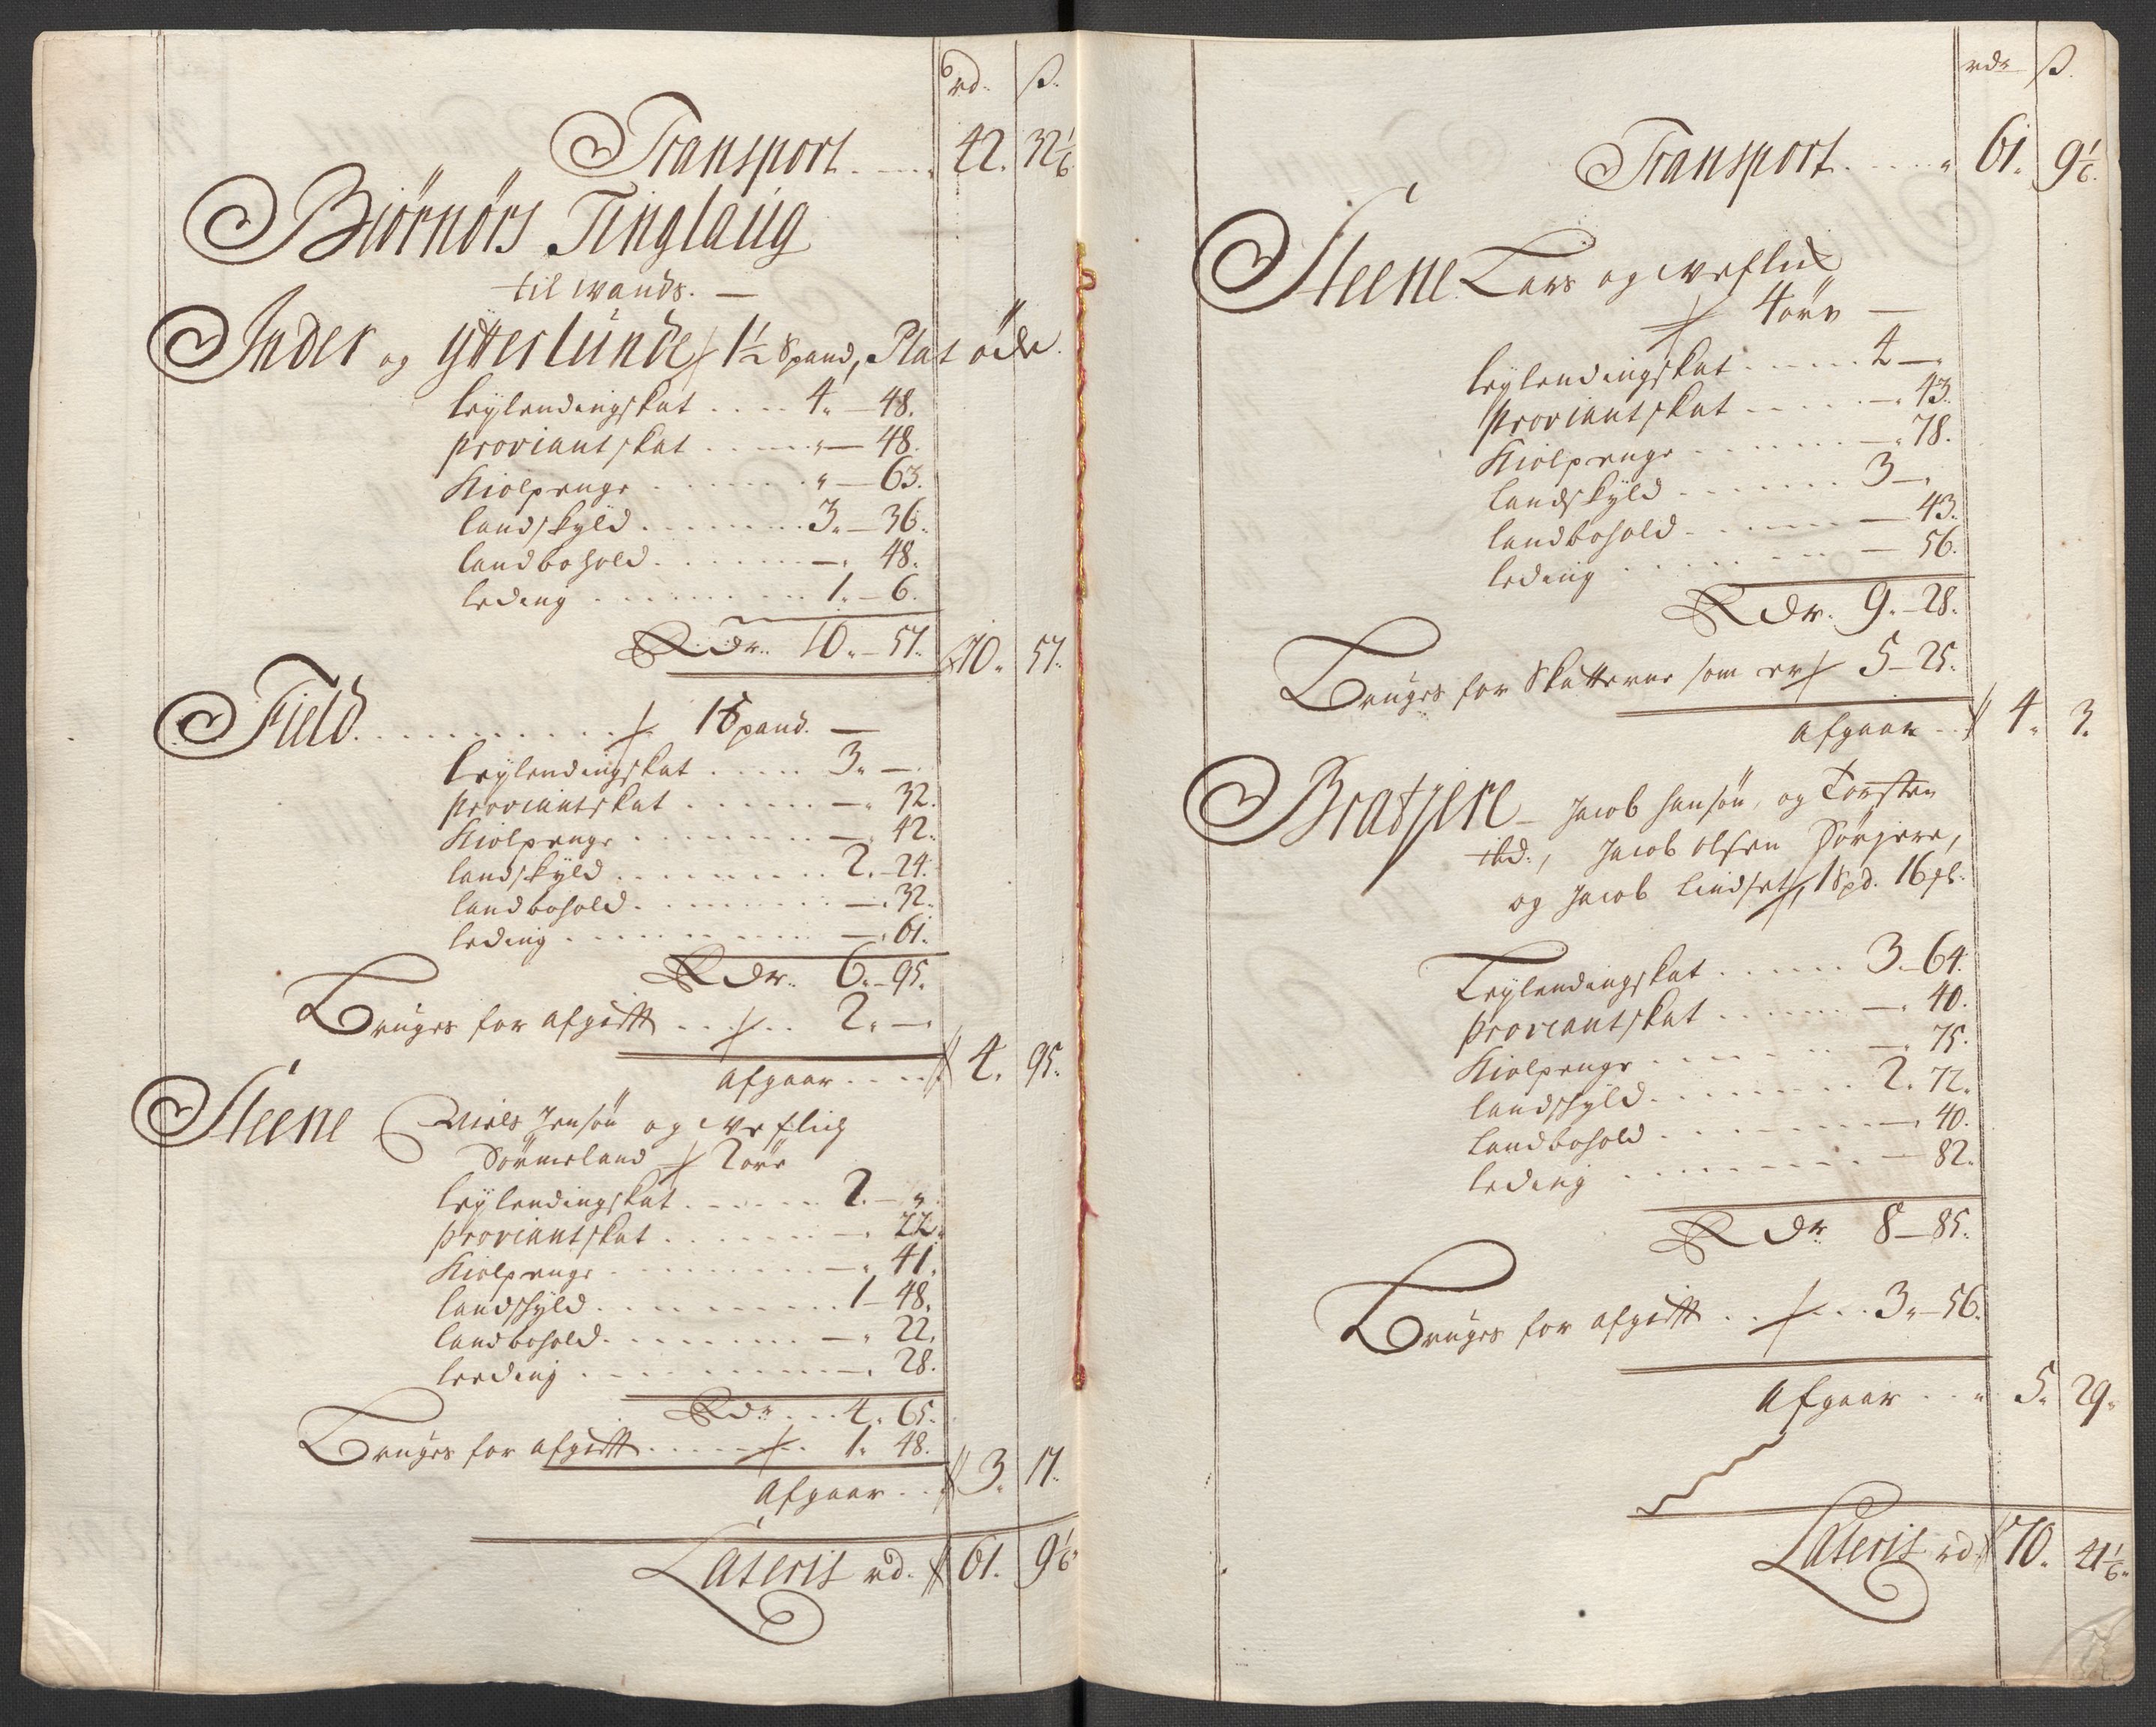 6
rd. ß.
Transport . . . 42. 32 1/6
Biörnörs Tinglaug
til wands. —
Inder og Ytterlunde 1 1/2 Spand, Plat öde.
leylendingskat . . . . 4. — 48.
proviantskat . . . . . " — 48.
Kiolpenge . . . . . . " — 63.
landskyld . . . . . . 3. — 36.
landbohold . . . . . . —. 48.
leding . . . . . . . . 1. — 6.
Rdr. 10. — 57. 10. 57.
Field . . . . . . . . . 1 Spand. —
leylendingskat . . . . . 3. —.
proviantskat . . . . . . —. 32.
Kiolpenge . . . . . . . —. 42.
landskyld . . . . . . . 2. — 24.
landbohold . . . . . . . —. 32.
leding . . . . . . . . . —. 61.
Rdr. 6. — 95.
Bruges for afgift . . . . 2. —.
Afgaar . . . . 4. 95.
Steene Niels Jensön og
Sörmeland 2 öre
leylendingskat . . . . . 2. — "
proviantskat . . . . . . —. 22.
Kiolpenge . . . . . . . —. 41.
landskyld . . . . . . . 1 — 48.
landbohold . . . . . . . —. 22.
leeding . . . . . . . . —. 28.
Rdr . . . 4. 65.
Bruges for afgift . . . . . 1. 48.
Afgaar . . 3. 17.
Lateris rd. 61. 9 1/6
rdr ß.
Transport . . . . " 61. 9 1/6.
Steene Lars og
4 öre —
leylendingskat . . . . . 4 —.
proviantskat . . . . . —. 43.
Kiolpenge . . . . . . —. 78.
landskyld . . . . . . . 3 —.
landbohold . . . . . . — 43.
leding . . . . . . . . — 56.
Rdr. 9. — 28.
Bruges for Skatterne som er 5 — 25.
Afgaar . . 4. 3.
Bratjere — Jacob Hansön, og Torsten
ibd., Jacob Olsen Sörjere,
og Jacob Lindset, 1 Spd. 16 #l.
Leylendingskat . . . . . 3. — 64.
proviantskat . . . . . . —. 40.
Kiolpenge . . . . . . . —. 75.
landskyld . . . . . . . 2. 72.
landbohold . . . . . . . —. 40.
leding . . . . . . . . . — 82.
Rdr 8 — 85.
Bruges for afgift . . . . . 3. — 56.
Afgaar . . . 5. 29.
Lateris rd. 70. 41 1/6.